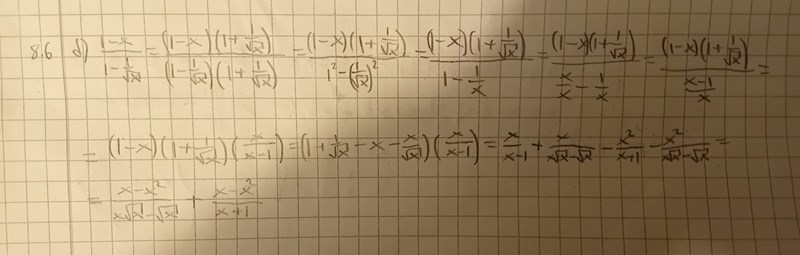 8.6 б) \frac{1-x}{1-\frac{1}{\sqrt{x}}} = \frac{(1-x)(1+\frac{1}{\sqrt{x}})}{(1-\frac{1}{\sqrt{x}})(1+\frac{1}{\sqrt{x}})} = \frac{(1-x)(1+\frac{1}{\sqrt{x}})}{1^2-(\frac{1}{\sqrt{x}})^2} = \frac{(1-x)(1+\frac{1}{\sqrt{x}})}{1-\frac{1}{x}} = \frac{(1-x)(1+\frac{1}{\sqrt{x}})}{\frac{x}{x}-\frac{1}{x}} = \frac{(1-x)(1+\frac{1}{\sqrt{x}})}{\frac{x-1}{x}} =
= (1-x)(1+\frac{1}{\sqrt{x}})(\frac{x}{x-1}) = (1+\frac{1}{\sqrt{x}}-x-\frac{x}{\sqrt{x}})(\frac{x}{x-1}) = \frac{x}{x-1}+\frac{x}{x\sqrt{x}-\sqrt{x}}-\frac{x^2}{x+1}-\frac{x^2}{x\sqrt{x}-\sqrt{x}} =
= \frac{x-x^2}{x\sqrt{x}-\sqrt{x}}+\frac{x-x^2}{x+1}